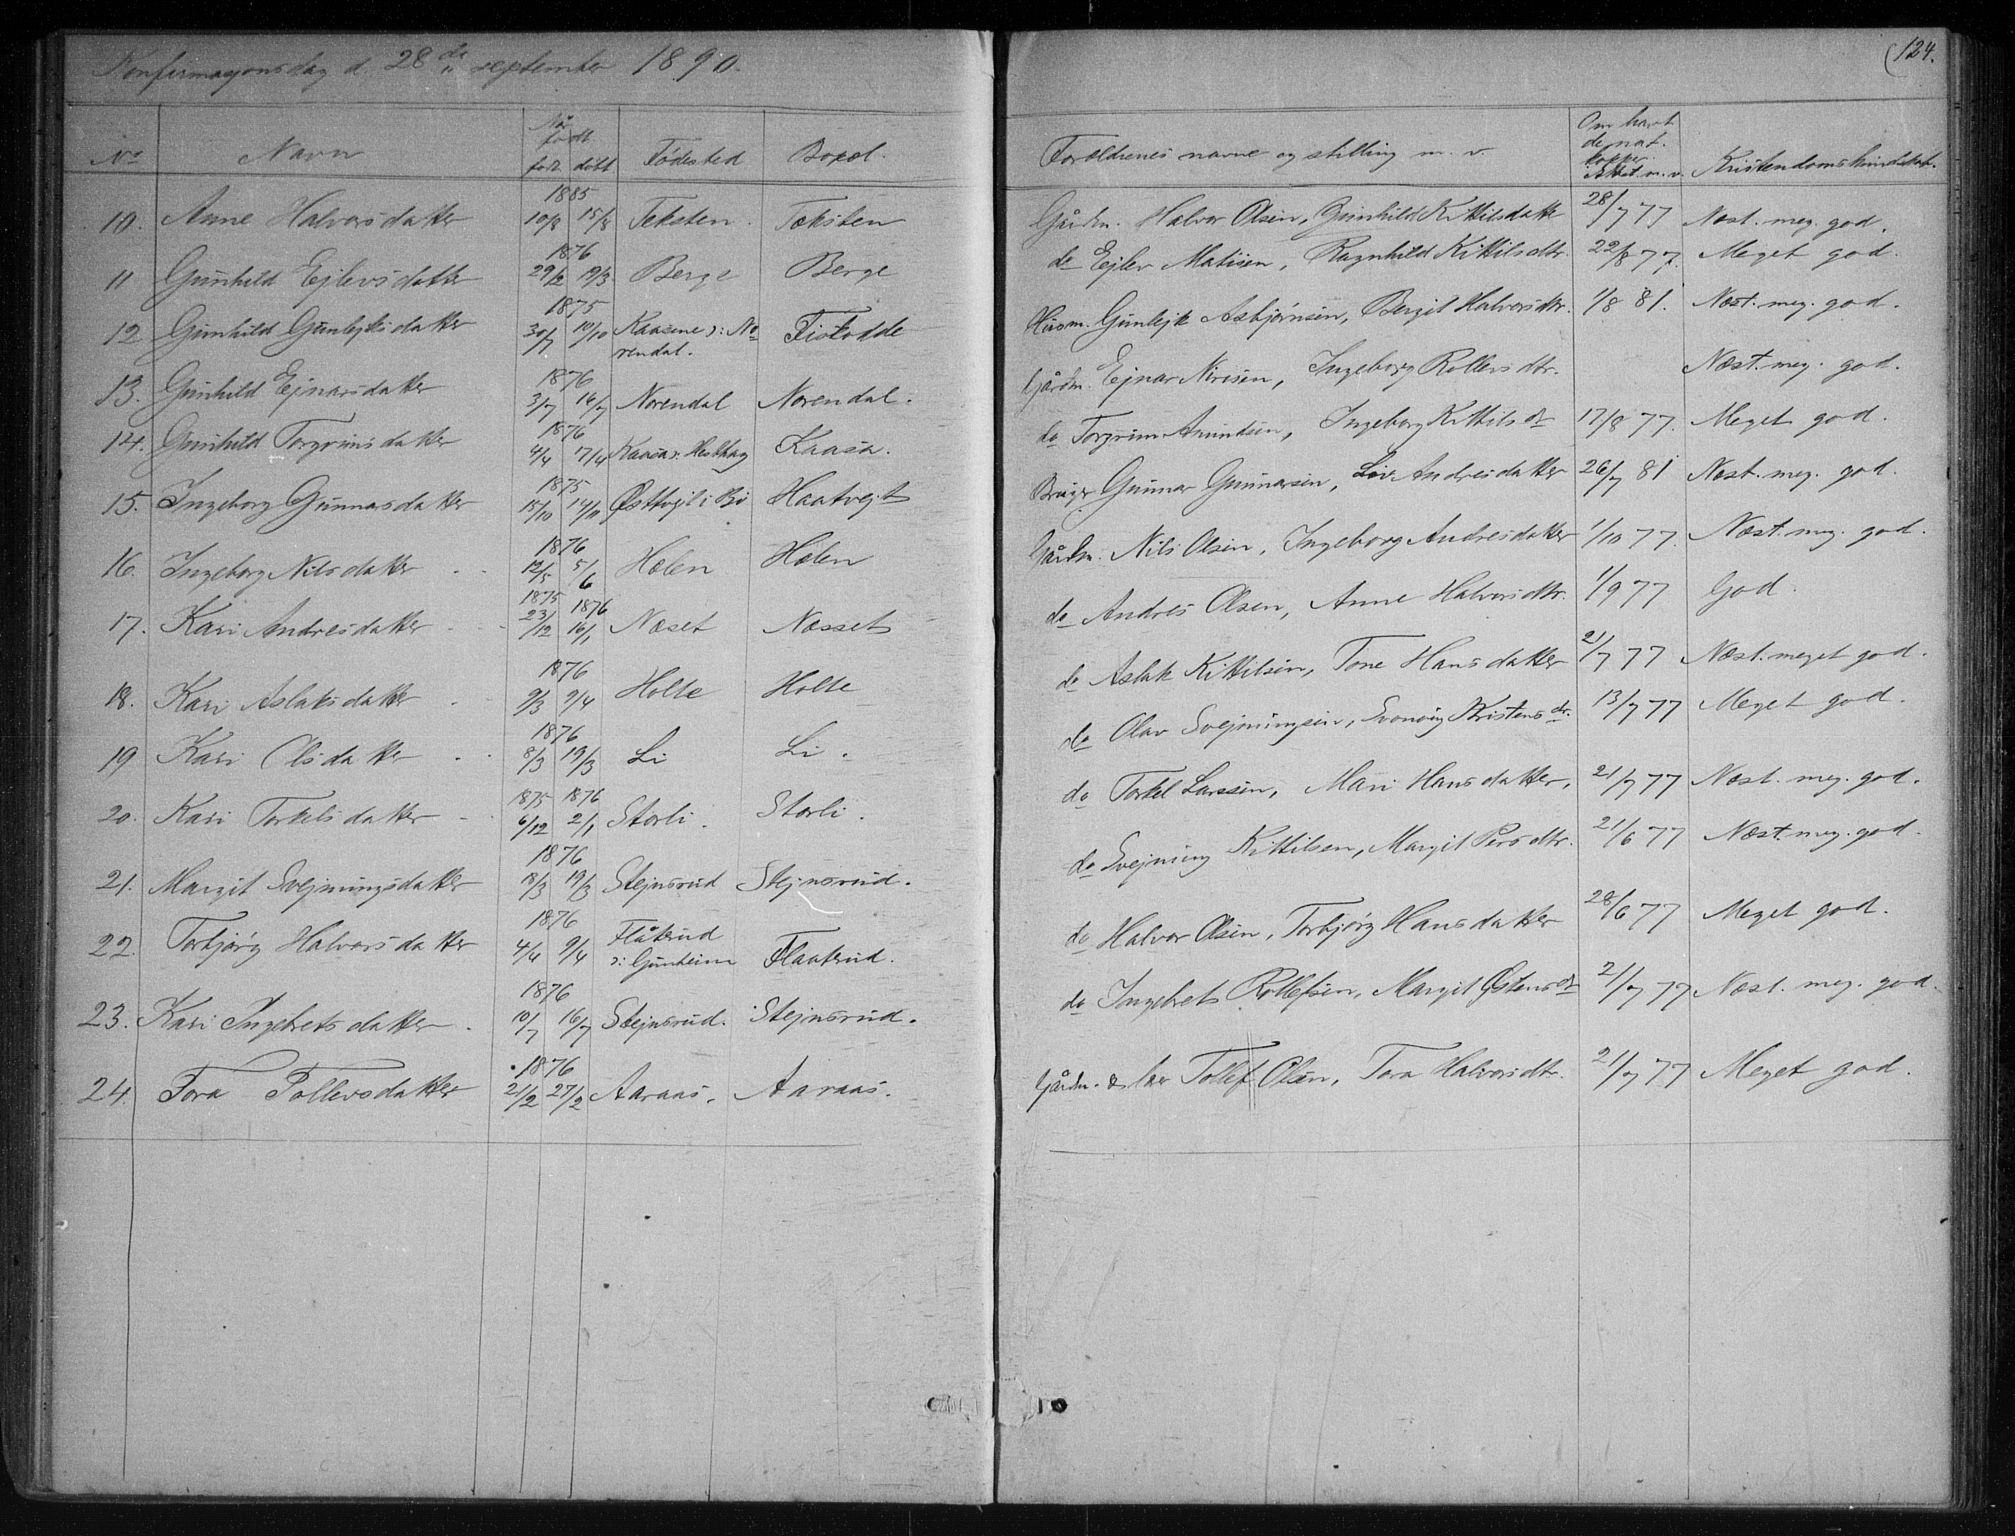 Konfirmasjonsdag d. 28de september 1890.
No Navn Når født født døbt Fødested Bopæl.
10. Anne Halvorsdatter 1885 10/8 15/8 Teksten. Teksten
11 Gunhild Ejlevsdatter 1876 29/2 19/3 Berge Berge
12 Gunhild Gunlejksdatter 1875 30/7 10/10 Kaasene i No- Fistodde
rendal.
13. Gunhild Ejnarsdatter 1876 3/7 16/7 Norendal Norendal.
14. Gunhild Torgrimsdatter 1876 4/4 17/4 Kaasa Kaasa.
15. Ingeborg Gunnarsdatter 1875 15/10 14/11 i Bø Haatvejt
16. Ingeborg Nilsdatter 1876 12/5 5/6 Hølen Hølen
17. Kari Andresdatter 1875 23/12 1876 16/1 Næset Næsset
18. Kari Aslaksdatter 1876 9/3 9/4 Holte Holte
19 Kari Olsdatter 1876 8/3 19/3 Li Li.
20. Kari Torkelsdatter 1875 6/12 1876 2/1 Storli. Storli.
21. Margit Svejnungsdatter 1876 18/3 19/3 Stejnsrud Stejnsrud.
22. Torbjørg Halvorsdatter 1876 4/4 9/4 Flåterud Flaaterud.
ɔ: Gunheim
23. Kari Ingebretsdatter 1876 10/7 16/7 Stejnsrud. Stejnsrud.
24. Tora Tollevsdatter 1876 21/2 27/2 Aaraas. Aaraas.
124.
Forældrenes navne og stilling m. v. Om havt de nat. kopper. m. v. Kristendomskundskab.
Gårdm. Halvor Olsen, Gunhild Kittilsdatter 28/7 77 Næst. meg. god.
do Ejlev Matisen, Ragnhild Kittilsdtr. 22/8 77. Meget god.
Husm. Gunlejk Asbjørnsen, Bergit Halvorsdtr. 1/8 81. Næst. meg. god.
Gårdm. Ejnar Nirisen, Ingeborg Rollevsdtr. Næst. meg. god.
do Torgrim Amundsen, Ingeborg Kittilsdr 17/8 77. Meget god.
Bruger Gunnar Gunnarsen, Andresdatter 26/7 81 Næst. meg. god.
Gårdm. Nils Olsen, Ingeborg Andresdatter 1/10 77. Næst. meg. god.
do Andres Olsen, Anne Halvorsdtr. 1/9 77 God.
do Aslak Kittilsen, Tone Hansdatter 21/7 77 Næst. meget god.
do Olav Svejnungsen, Kristensdr. 13/7 77 Meget god.
do Torkel Larssen, Mari Hansdatter, 21/7 77 Næst. meg. god.
do Svejnung Kittilsen, Margit Persdtr. 21/6 77 Næst. meg. god.
do Halvor Olsen, Torbjørg Hansdatter 28/6 77 Meget god.
do Ingebret Rollefsen, Margit Østensdr 21/7 77 Næst. meg. god.
Gårdm. & lær Tollef Olsen, Tora Halvorsdtr. 21/7 77 Meget god.